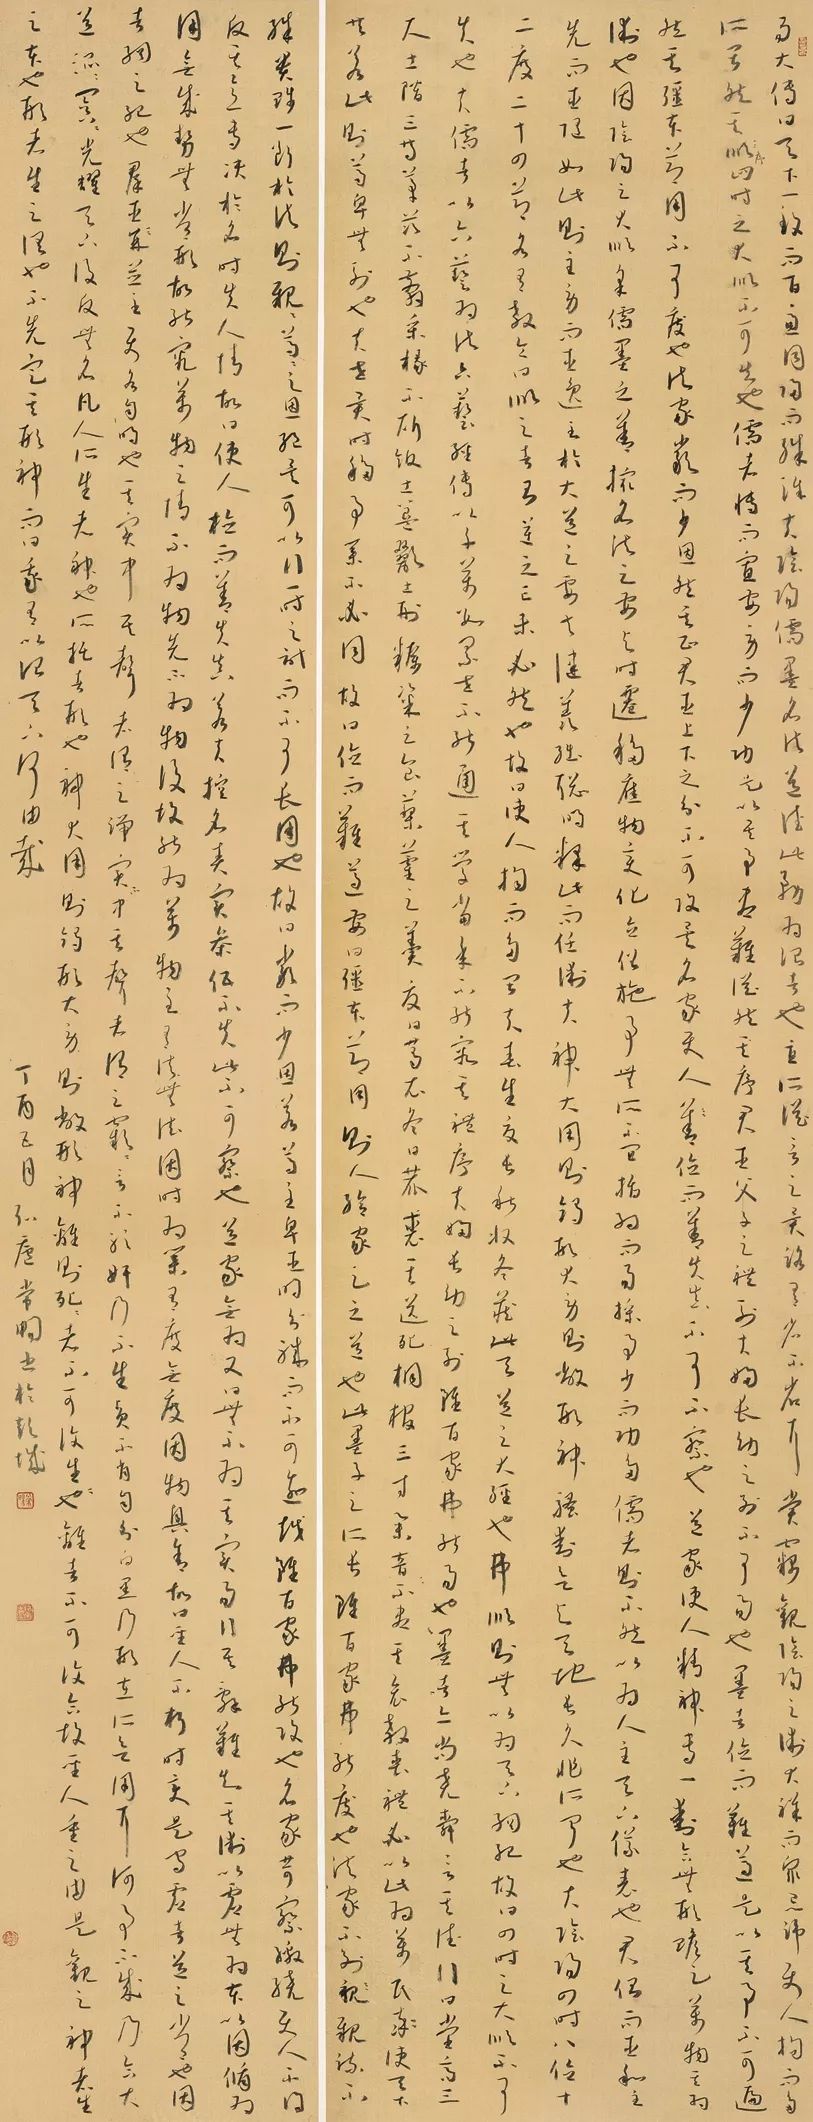 易大傳曰天下一致而百慮同歸而殊塗夫陰陽儒墨名法道德此務為治者也直所從言之異路有省不省耳嘗竊觀陰陽之術大祥而眾忌諱使人拘而多
所畏然其順四時之大順不可失也儒者博而寡要勞而少功是以其事盡難從然其序君臣父子之禮列夫婦長幼之別不可易也墨者儉而難遵是以其事不可遍
然其彊本節用不可廢也法家嚴而少恩然其正君臣上下之分不可改矣名家使人善儉而善失真不可不察也道家使人精神專一動合無形贍足萬物其為
術也因陰陽之大順采儒墨之善撮名法之要與時遷移應物變化立俗施事無所不宜指約而易操事少而功多儒者則不然以為人主天下儀表也君倡而臣和主
先而臣隨如此則主勞而臣逸至於大道之要去健羨絀聰明釋此而任術夫神大用則竭形大勞則敝形神騷動欲與天地長久非所聞也夫陰陽四時八位十
二度二十四節各有教令曰順之者昌逆之亡未必然也故曰使人拘而多畏夫春生夏長秋收冬藏此天道之大經也弗順則無以為天下綱紀故曰四時之大順不可
失也夫儒者以六藝為法六藝經傳以千萬數累世不能通其學當年不能究其禮序夫婦長幼之別雖百家弗能易也墨者亦尚堯舜言其德行曰堂高三
尺土階三等茅茨不翦采椽不斲飯土簋歠土刑糲粱之食藜藿之羹夏日葛衣冬日鹿裘其送死桐棺三寸舉音不盡其哀教喪禮必以此為萬民率使天下
共若此則尊卑無別也夫世異時移事業不必同故曰儉而難遵要曰彊本節用則人給家足之道也此墨子之所長雖百家弗能廢也法家不別親親疏不
殊貴賤一斷於法則親親尊尊之恩絕矣可以行一時之計而不可長用也故曰嚴而少恩若尊主卑臣明分職而不可逾越雖百家弗能改也名家苛察繳繞使人不得
反其意專決於名時失人情故曰使人儉而善失真若夫控名責實參伍不失此不可察也道家無為又曰無不為其實易行其辭難知其術以虛無為本以因循為
用無成勢無常形故能究萬物之情不為物先不為物後故能為萬物主有法無法因時為業有度無度因物與合故曰聖人不朽時變是守虛者道之常也因
者綱之紀也群臣並至使各自明也其實中其聲者謂之端實不中其聲者謂之窾窾言不聽奸乃不生賢不肖自分白黑乃形在所欲用耳何事不成乃合大
道混混冥冥光耀天下復反無名凡人所生者神也所託者形也神大用則竭形大勞則敝形神離則死死者不可復生也離者不可復合故聖人重之由是觀之神者生
之本也形者生之具也不先定其形神而曰我有以治天下何由哉
丁酉五月弘廬常鵬書於彭城